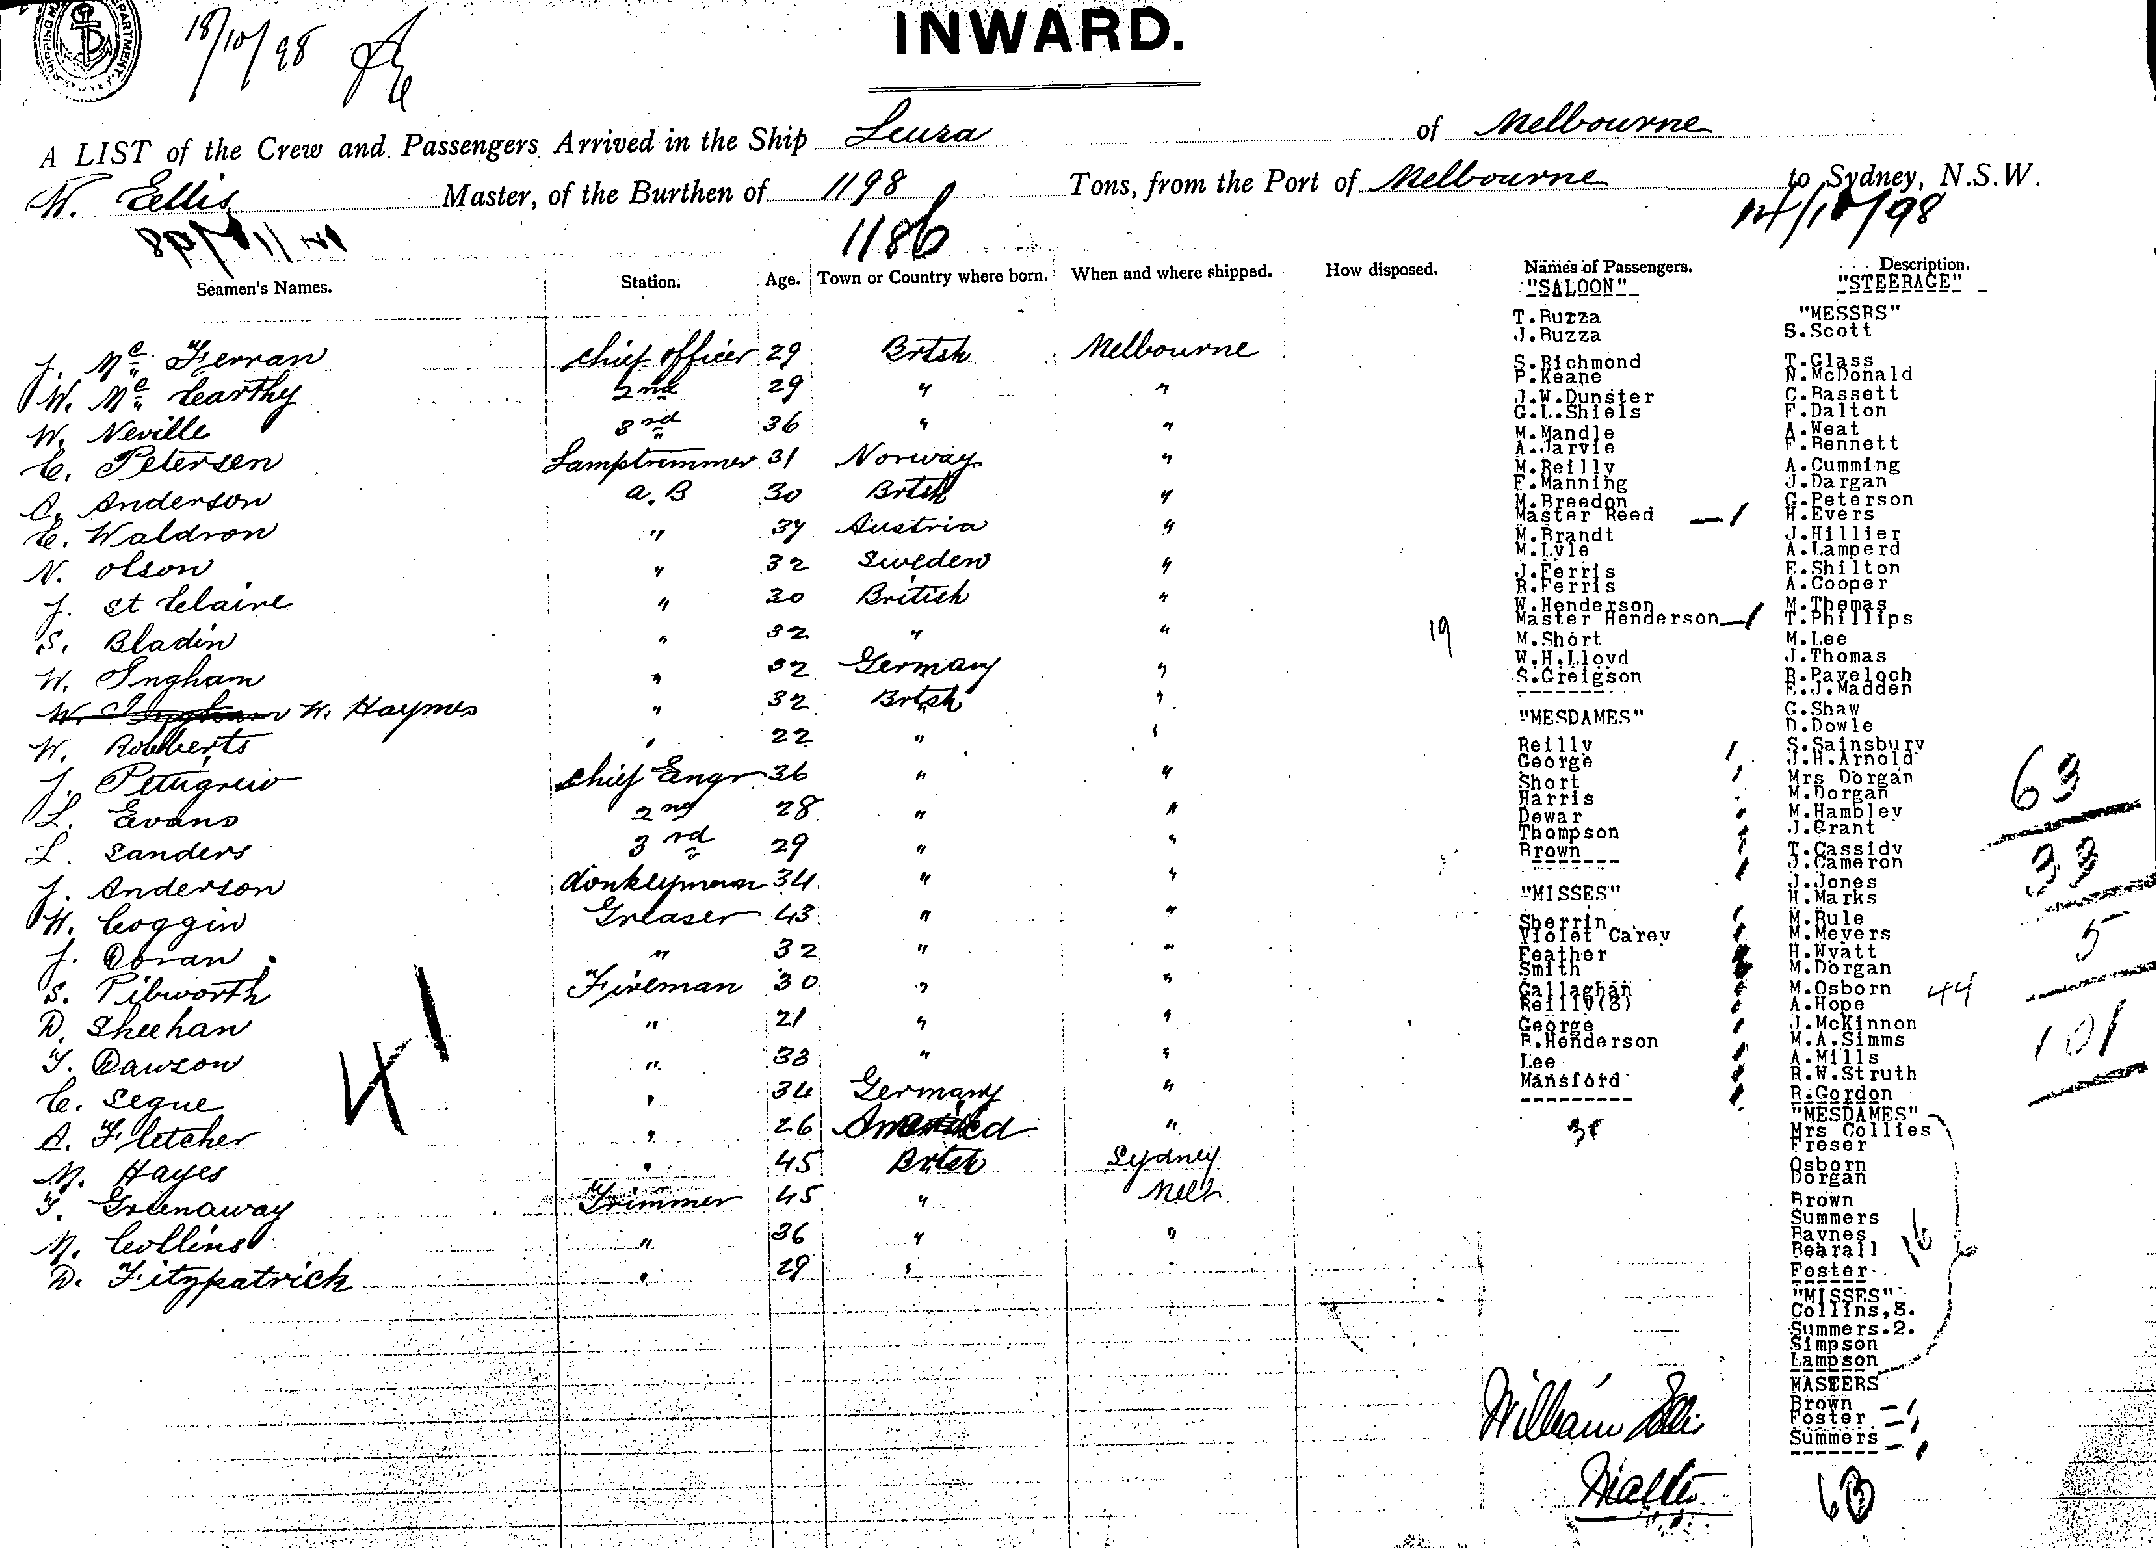 18/10/98
INWARD.
A LIST of the Crew and Passengers Arrived in the Ship Leura of Melbourne
W. Ellis Master, of the Burthen of 1198 Tons, from the Port of Melbourne to Sydney, N.S.W.
1186
Seamen's Names. Station. Age. Town or Country where born. When and where shipped. How disposed. Names of Passengers. Description.
J. Mc Ferran chief officer 29 Brtsh Melbourne
W. Mc Carthy 2nd 29 " "
W. Neville 3rd 36 " "
C. Petersen Lamptrimmer 31 Norway "
A. Anderson A.B 30 Brtsh "
C. Waldron " 37 Austria "
N. Olson " 32 Sweden "
J. St Claire " 30 British "
S. Bladin " 32 " "
W. Ingham " 32 Germany "
W. Haymes " 32 Brtsh "
W. Robberts " 22 " "
J. Pettigrew chief Engr 36 " "
L. Evans 2nd 28 " "
L. Sanders 3rd 29 " "
J. Anderson donkleyman 34 " "
W. Coggin Greaser 43 " "
J. Doran " 32 " "
S. Pibworth Fireman 30 " "
D. Sheehan " 21 " "
T. Dawson " 33 " "
C. Segue " 34 Germany "
A. Fletcher " 26 "
M. Hayes " 45 Brtsh Sydney
T. Greenaway Trimmer 45 " Melb
M. Collins " 36 " "
D. Fitzpatrick " 29 "
41
"SALOON"
T.Buzza
J.Buzza
S.Richmond
P.Keane
J.W.Dunster
G.L.Shiels
M.Mandle
A.Jarvie
M.Reilly
F.Manning
M.Breedon
Master Reed — 1
M.Brandt
M.Lyle
J.Ferris
R.Ferris
W.Henderson
Master Henderson — 1
19
M.Short
W.H.Lloyd
S.Greigson
"MESDAMES"
Reilly
George
Short
Harris
Dewar
Thompson
Brown
"MISSES"
Sherrin
Violet Carey
Feather
Smith
Gallaghan
Reilly(3)
George
E.Henderson
Lee
Mansford
William Ellis
Master
"STEERAGE"
"MESSRS"
S.Scott
T.Glass
N.McDonald
C.Bassett
F.Dalton
A.Weat
F.Bennett
A.Cumming
J.Dargan
G.Peterson
H.Evers
J.Hillier
A.Lamperd
E.Shilton
A.Cooper
M.Thomas
T.Phillips
M.Lee
J.Thomas
R.Paveloch
E.J.Madden
G.Shaw
D.Dowle
S.Sainsbury
J.H.Arnold
Mrs Dorgan
M.Dorgan
M.Hambley
J.Grant
T.Cassidy
J.Cameron
J.Jones
H.Marks
M.Rule
M.Meyers
H.Wyatt
M.Dorgan
M.Osborn 44
A.Hope
J.McKinnon
M.A.Simms
A.Mills
R.W.Struth
R.Gordon
"MESDAMES"
Mrs Collies
Freser
Osborn
Dorgan
Brown
Summers
Baynes
Bearall
Foster
16
"MISSES"
Collins,3.
Summers.2.
Simpson
Lampson
MASTERS
Brown — 1
Foster — 1
Summers — 1
63
63
33
5
101